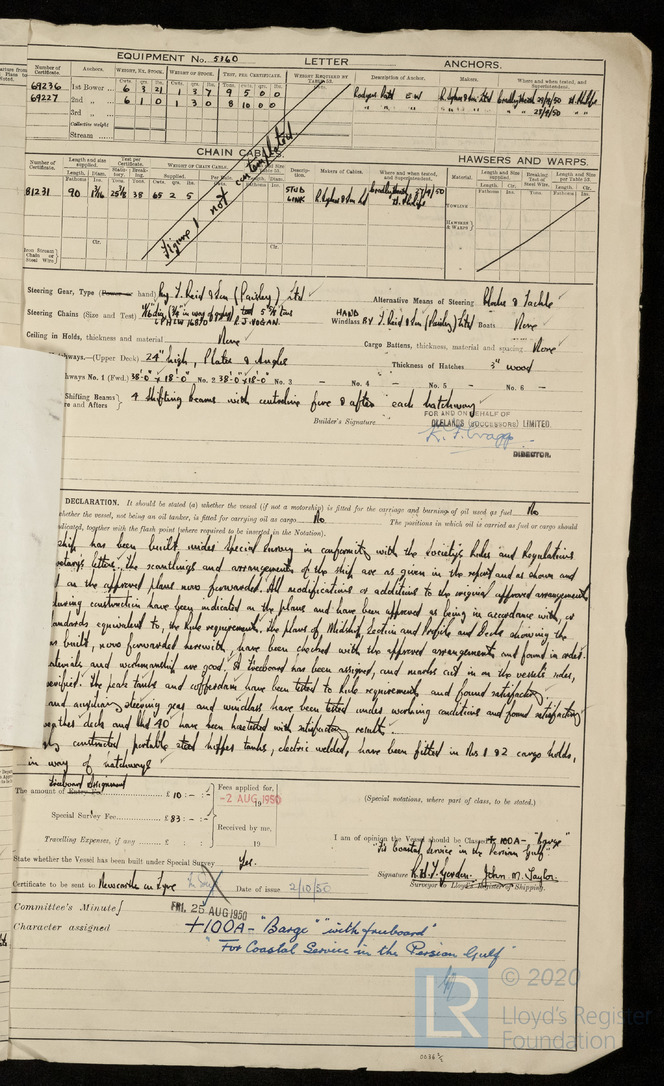 EQUIPMENT No. 5160 LETTER ANCHORS.
Number of Certificate. Anchors. Weight, Ex. Stock. Weight of Stock. Test, per Certificate. Weight Required by Description of Anchor. Makers. Where and when tested, and Superintendent.
Cwts. qrs. lbs. Cwts. qrs. lbs. Tons. cwts. qrs. lbs.
69236 1st Bower 6 3 21 1 3 7 9 5 0 0
69227 2nd " 6 1 0 1 3 0 8 10 0 0
3rd "
Collective weight
Stream
CHAIN CABLE HAWSERS AND WARPS.
Number of Certificate. Length and size supplied. Test per Certificate. Weight of Chain Cable. Description. Makers of Cables. Where and when tested, and Superintendent. Material. Length and Size supplied. Breaking Test of Steel Wire. Length and Size per Table 53.
81231 90 1 3/16 38 65 2 5 STUD LINK
Figure 1 not contemplated
Towline
Hawsers & Warps
Iron Stream Chain or Steel Wire
Steering Gear, Type (Power or hand) By J. Reid & Son (Paisley) Ltd Alternative Means of Steering Blocks & Tackle
Steering Chains (Size and Test) HAND Windlass BY J. Reid & Son (Paisley) Ltd Boats None
Ceiling in Holds, thickness and material None Cargo Battens, thickness, material and spacing None
(Upper Deck) 24" high, Plates & Angles Thickness of Hatches 3" wood
No. 1 (Fwd.) 38'-0" x 18'-0" No. 2 38'-0" x 18'-0" No. 3 – No. 4 – No. 5 – No. 6 –
Shifting Beams and Afters 4 shifting beams with centreline fore & after each hatchway
FOR AND ON BEHALF OF
Builder's Signature CLELANDS (SUCCESSORS) LIMITED.
DIRECTOR.
DECLARATION. It should be stated (a) whether the vessel (if not a motorship) is fitted for the carriage and burning of oil used as fuel No
whether the vessel, not being an oil tanker, is fitted for carrying oil as cargo No The positions in which oil is carried as fuel or cargo should
indicated, together with the flash point (where required to be inserted in the Notation).
ship has been built under Special Survey in conformity with the Society's Rules and Regulations
letters, the scantlings and arrangements of the ship are as given in the report and as shown and
on the approved plans now forwarded. All modifications or additions to the original approved arrangements
during construction have been indicated on the plans and have been approved as being in accordance with, or
standards equivalent to, the Rule requirements. The plans of Midship Section and Profile and Decks showing the
as built, now forwarded herewith, have been checked with the approved arrangements and found in order.
materials and workmanship are good. A freeboard has been assigned, and marks cut in on the vessels sides,
verified. The peak tanks and cofferdam have been tested to Rule requirements and found satisfactory
and auxiliary steering gear and windlass have been tested under working conditions and found satisfactory
deck and bhd 40 have been hosetested with satisfactory results.
constructed, portable steel hopper tanks, electric welded, have been fitted in Nos 1 & 2 cargo holds,
in way of hatchways
Freeboard Assignment
The amount of Entry Fee £ 10 : – : – Fees applied for,
-2 AUG 1950
Special Survey Fee £ 83 : – : – Received by me,
Travelling Expenses, if any £ : : 19
(Special notations, where part of class, to be stated.)
I am of opinion the Vessel should be Classed +100A– "Barge"
"For Coastal Service in the Persian Gulf"
State whether the Vessel has been built under Special Survey Yes.
Signature John M. Taylor
Surveyor to Lloyd's Register of Shipping.
Certificate to be sent to Newcastle on Tyne Date of issue 2/10/50
Committee's Minute FRI. 25 AUG 1950
Character assigned +100A – "Barge" "with freeboard"
"For Coastal Service in the Persian Gulf"
LR © 2020
Lloyd's Register
Foundation